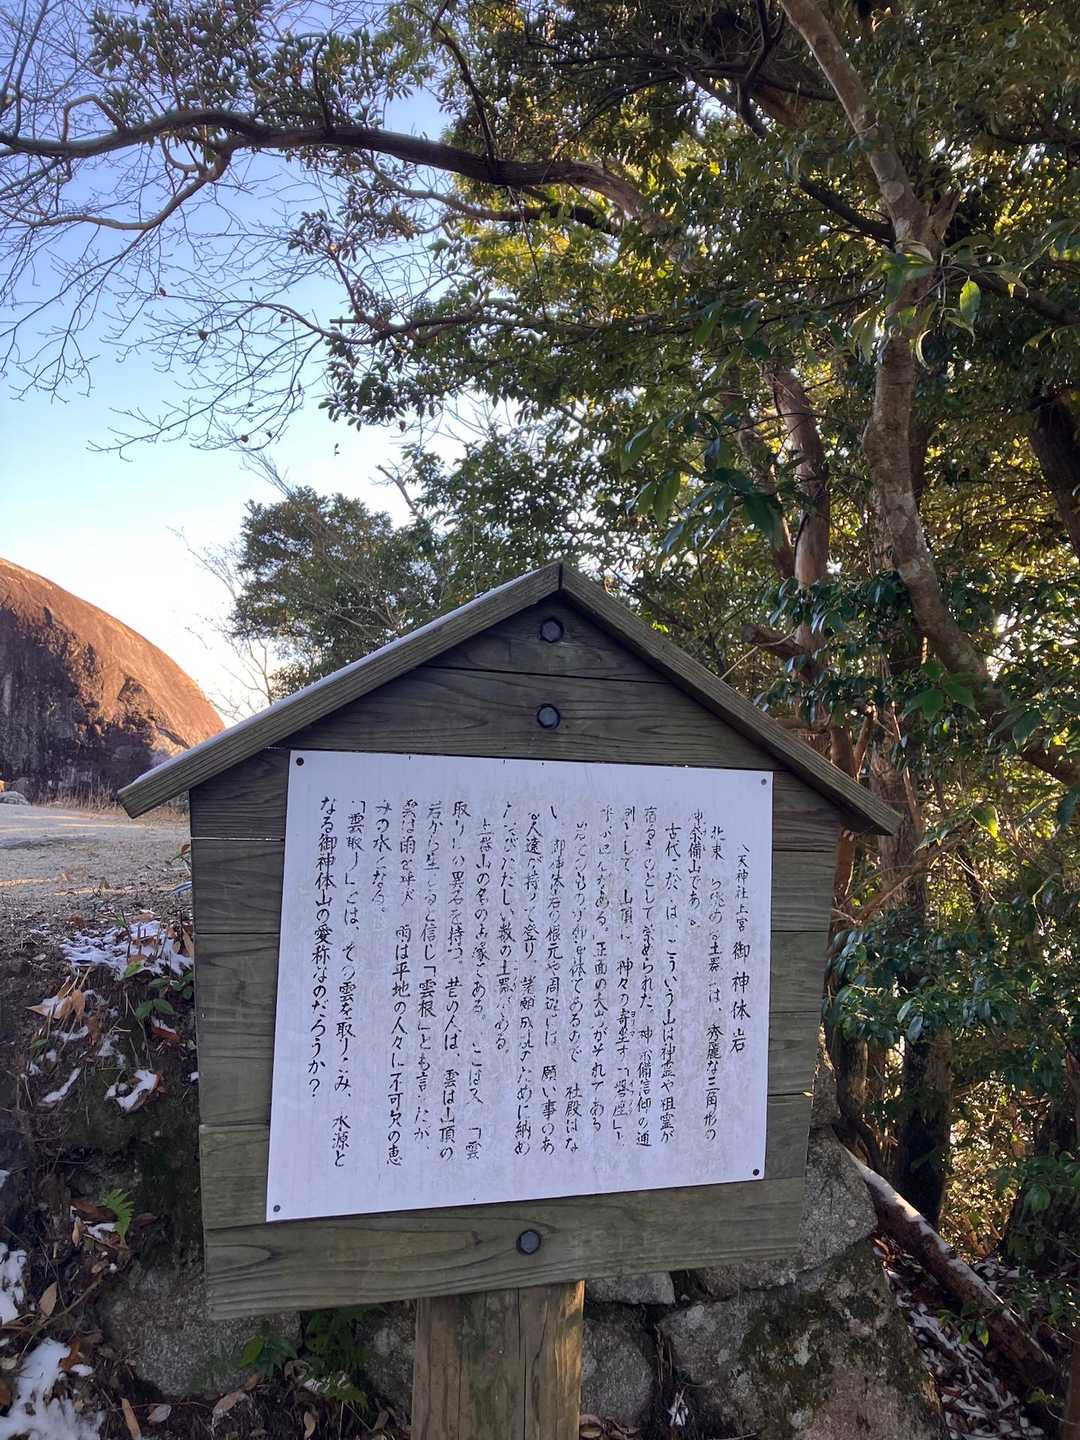 天神社上宮 御神体岩
北東 らながめる土器 は、秀麗な三角形の
神奈備山である。
古代 は、こういう山は神霊や祖霊が
宿るものとして崇められた。神奈備信仰の通
則として、山頂に 神々の寄坐す「磐座」
ある。正面の大 がそれである
御神体であるので 社殿はな
い 御神体岩の根元や周辺には、願い事のあ
人達が持って登り、諸願成就のために納め
たおびただしい数の土器がある。
土器山の名の 縁である。ここは又、「雲
取り の異名を持つ。昔の人は、雲は山頂の
岩から生 ると信じ「雲根」とも言 たが、
雲は雨を呼び 雨は平地の人々に不可欠の恵
みの水となる。
「雲取り」とは、その雲を取りこみ、水源と
なる御神体山の愛称なのだろうか?